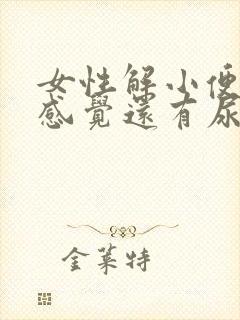 女性解小便
感覺還有尿
金萊特